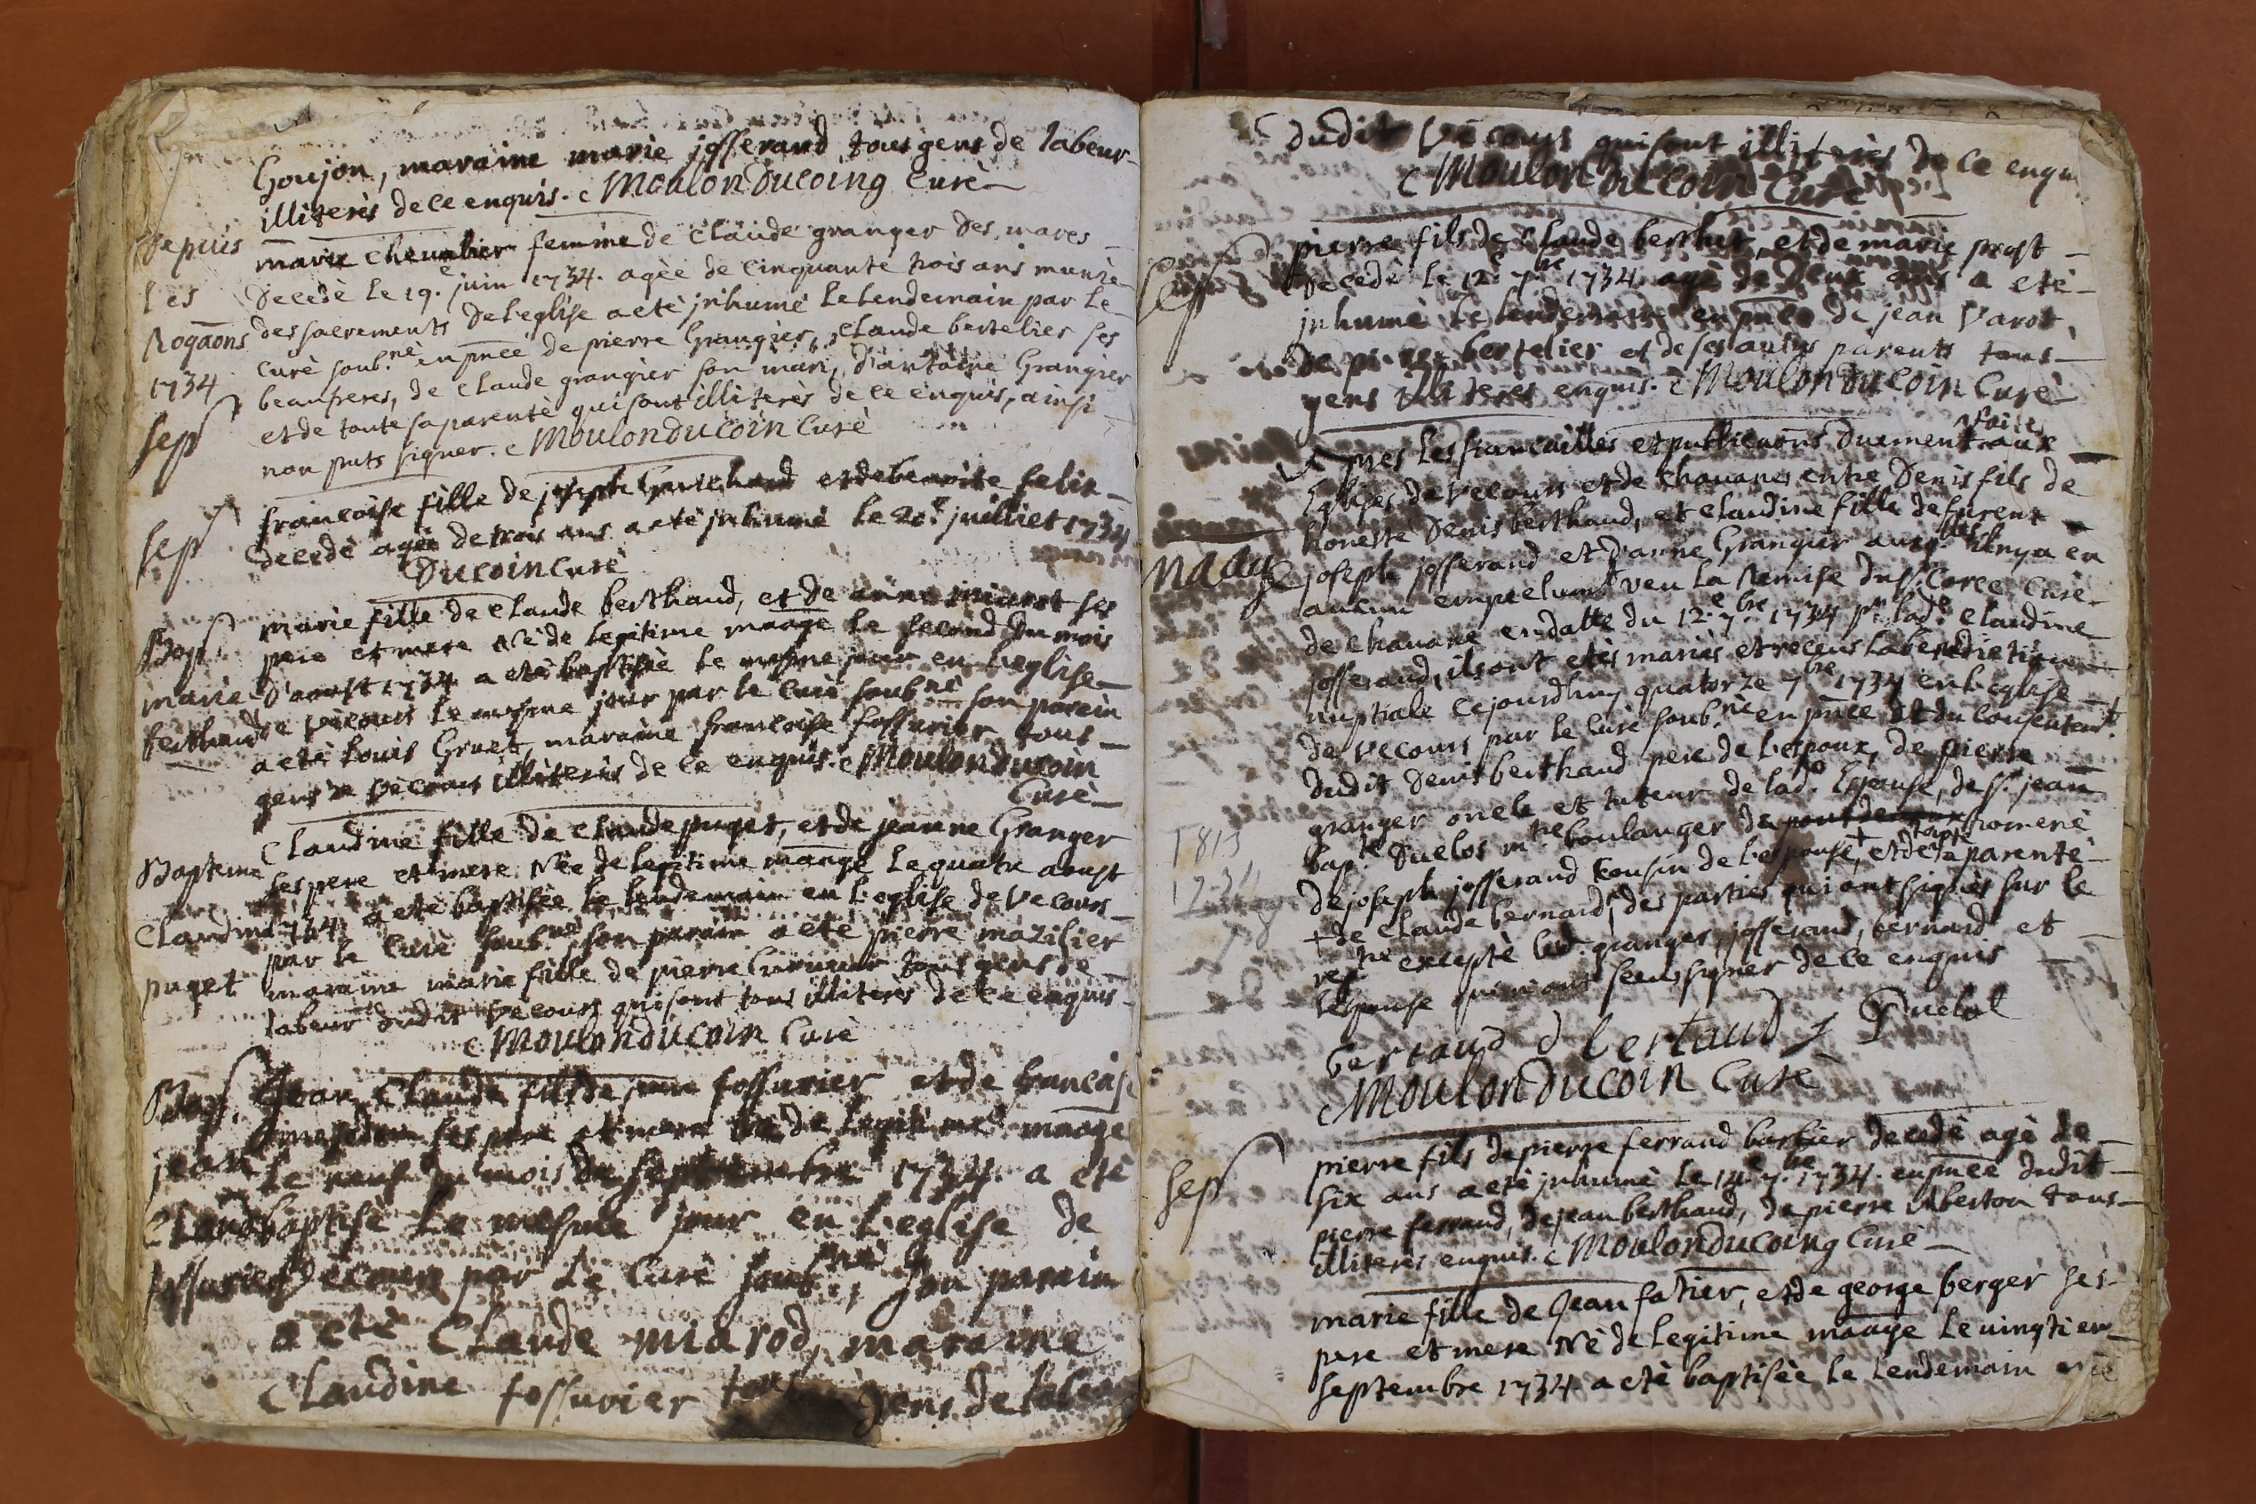 Goujon, maraine marie josserand tous gens de labeur
illiterès de ce enquis. c Moulon Ducoing Curè
Depuis les Rogaons 1734
sep
marie chevalier femme de claude granger des mares
decedè le 19.e juin 1734. agèe de cinquante trois ans munie
des sacrements de l'eglise a etè jnhumè le lendemain par le
curè soub.nè en pnce de pierre Grangier, claude bertelier ses
beaufreres, de claude grangier son mari, d'antoine Grangier
et de toute sa parentè qui sont illiterès de ce enquis, ainsi
non puts signer. c Moulon Ducoin Curè
sep
francoise fille de joseph Guichard et de benoite felix
decedè agèe de trois ans a etè jnhumè le 20.e juilliet 1734
Ducoin Curè
Bap
marie berthaud
marie fille de claude berthaud, et de anne miarot ses
pere et mere Nè de legitime maage le second du mois
d'aoust 1734 a etè baptisèe le mesme jour en l'eglise
de vecours le mesme jour par le curè soub.nè son parain
a etè louis Gruet, maraine francoise fossurier tous
gens de vècours illiterès de ce enquis. c Moulon Ducoin
Curè
Bapteme Claudine puget
Claudine fille de claude puget, et de jeanne Granger
ses pere et mere Nèe de legitime maage le quatre aoust
1734 a etè baptisèe le lendemain en l'eglise de vecours
par le curè soub.nè son parain a etè pierre mazilier
maraine marie fille de pierre tous gens de
labeur dudit vecours qui sont tous illiterès de ce enquis
c Moulon Ducoin Curè
Bap. jean Claude fossurier
Jean Claude fils de fossurier et de francoise
ses pere et mere nè de legitime maage
le neuf du mois de septembre 1734. a etè
baptisè le mesme jour en l'eglise de
vecours par le curè soub.nè son parain
a etè Claude miarod, maraine
Claudine fossurier tous gens de labeur
dudit vecours qui sont illiterès de ce enquis
c Moulon Ducoin Curè
sep
pierre fils de claude berthet, et de marie prost
decedè le 12.e 7.bre 1734 agè de deux ans a etè
jnhumè le lendemain en pnce de jean varot,
de pierre bertelier et de ses autres parents tous
gens illiteres enquis. c Moulon Ducoin Curè
Apres les fiancailles et publicaons duement faites aux
Eglises de vecours et de chavanes entre Denis fils de
maage
honeste Denis berthaud, et claudine fille de furent
joseph josserand et d'anne Grangier auxq.lles il n'y a eu
aucun empechem.t veu la Remise du s.r Curè
de chavane en datte du 12.e 7.bre 1734 p.r lad.e claudine
josserand, ils ont etès mariès et receus la benediction
nuptiale cejourdhuy quatorze 7.bre 1734 en l'eglise
de vecours par le curè soub.nè en pnce et du consentem.t
dudit Denis berthaud pere de l'espoux, de pierre
granger oncle et tuteur de lad.e Espouse, de s.r jean
bap.te Duclos m.tre boulanger du romenè
de joseph josserand cousin de l'espouse, + et de toute la parentè
+ de claude bernard, des parties qui ont signès sur le
reg.re exceptè led. granger, josserand, bernard et
l'espouse qui n'ont sceus signer de ce enquis
1813
1734
bertaud d bertaud j Duclol
c Moulon Ducoin Curè
sep
pierre fils de pierre ferrand barbier decedè agè de
six ans a etè jnhumè le 14.e 7.bre 1734. en pnce dudit
pierre ferrand, de jean berthaud, de pierre tous
illiterès enquis. c Moulon Ducoing Curè
marie fille de Jean fatier, et de george berger ses
pere et mere Nè de legitime maage le vingtiem
septembre 1734 a etè baptisèe le lendemain